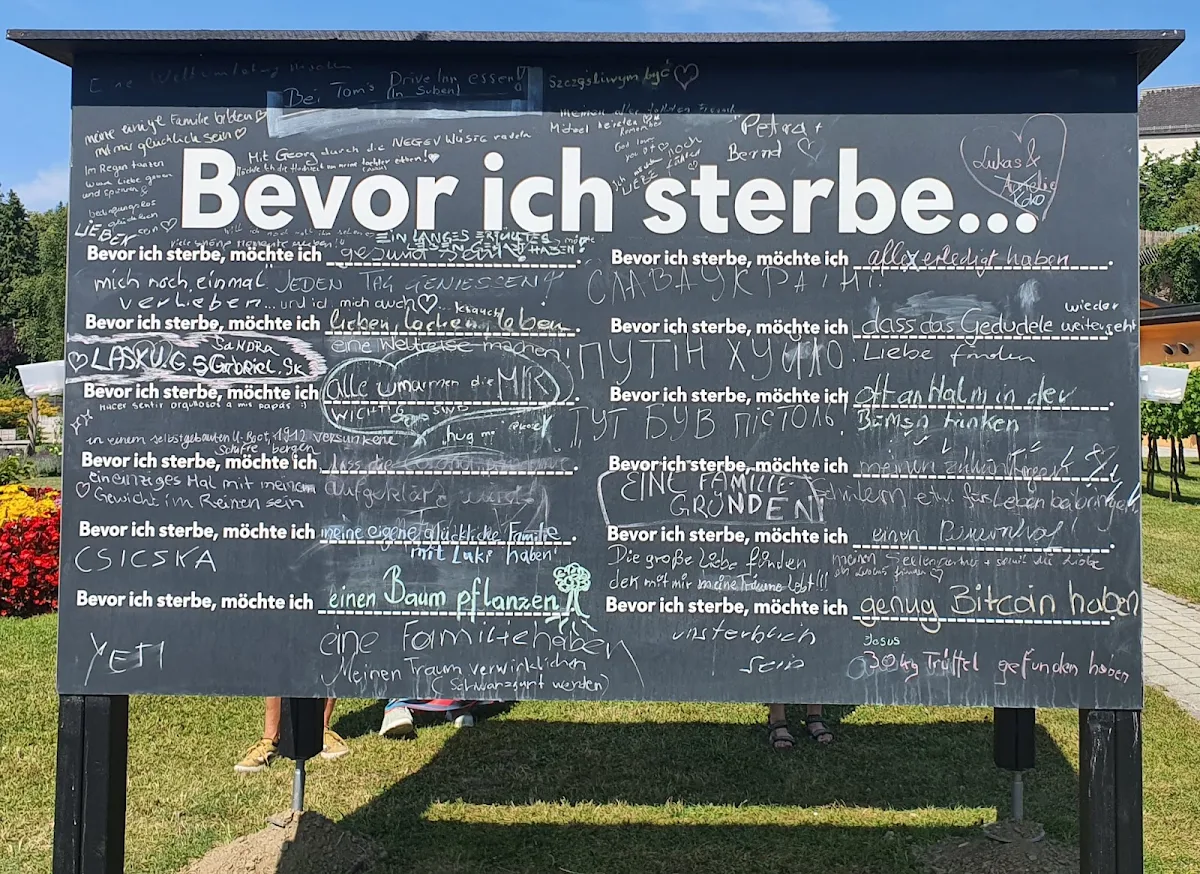 Bei Tom's Drive Inn essen!
(In Suben)
Szczęśliwym być ♡
meine einige Familie bilden ♡
mit mir glücklich sein ♡
Im Regen tanzen
Wahre Liebe geben
und spüren &
bedingungslos
glücklich
LIEBEN sein ♡
Mit Georg durch die NEGEV WÜSTE radeln
Petra +
Bernd ♡
Lukas &
Bevor ich sterbe...
EIN LANGES ERFÜLLTES
LEBEN GEHABT HABEN!
Bevor ich sterbe, möchte ich gesund sein!
mich noch einmal JEDEN TAG GENIESSEN!
verlieben... und ich mich auch ♡
Bevor ich sterbe, möchte ich lieben, lachen, leben
eine Weltreise machen!
SANDRA
♡ LASKU.G. & Gabriel.Sk
Bevor ich sterbe, möchte ich Alle umarmen die MIR
WICHTIG SIND
Hacer sentir orgullosos a mis papás :)
in einem selbstgebauten U-Boot, 1912 versunkene
Schiffe bergen
hug me
Bevor ich sterbe, möchte ich dass die
ein einziges Mal mit meinem
♡ Gewicht im Reinen sein
aufgeklärt wird
Bevor ich sterbe, möchte ich meine eigene glückliche Familie
mit Luki haben!
CSICSKA
Bevor ich sterbe, möchte ich einen Baum pflanzen
eine Familie haben
YETI
Meinen Traum verwirklichen
(Schwarzgurt werden)
Bevor ich sterbe, möchte ich alles erledigt haben
СЛАВА УКРАЇНІ!
wieder
Bevor ich sterbe, möchte ich dass das Gedudele weitergeht
ПУТІН ХУЙЛО!
Liebe finden
Bevor ich sterbe, möchte ich oft an Halm in der
BumSn trinken
ТУТ БУВ ПІСТОЛЬ!
Bevor ich sterbe, möchte ich meinen zukünftigen
EINE FAMILIE
GRÜNDEN!
Kindern etw. fürs Leben beibringen
Bevor ich sterbe, möchte ich einen
Die große Liebe finden
der mit mir meine Träume lebt!!!
meinen Seelenpartner + somit die Liebe
des Lebens finden ♡
Bevor ich sterbe, möchte ich genug Bitcoin haben
unsterblich
sein
Josus
30kg Trüffel gefunden haben